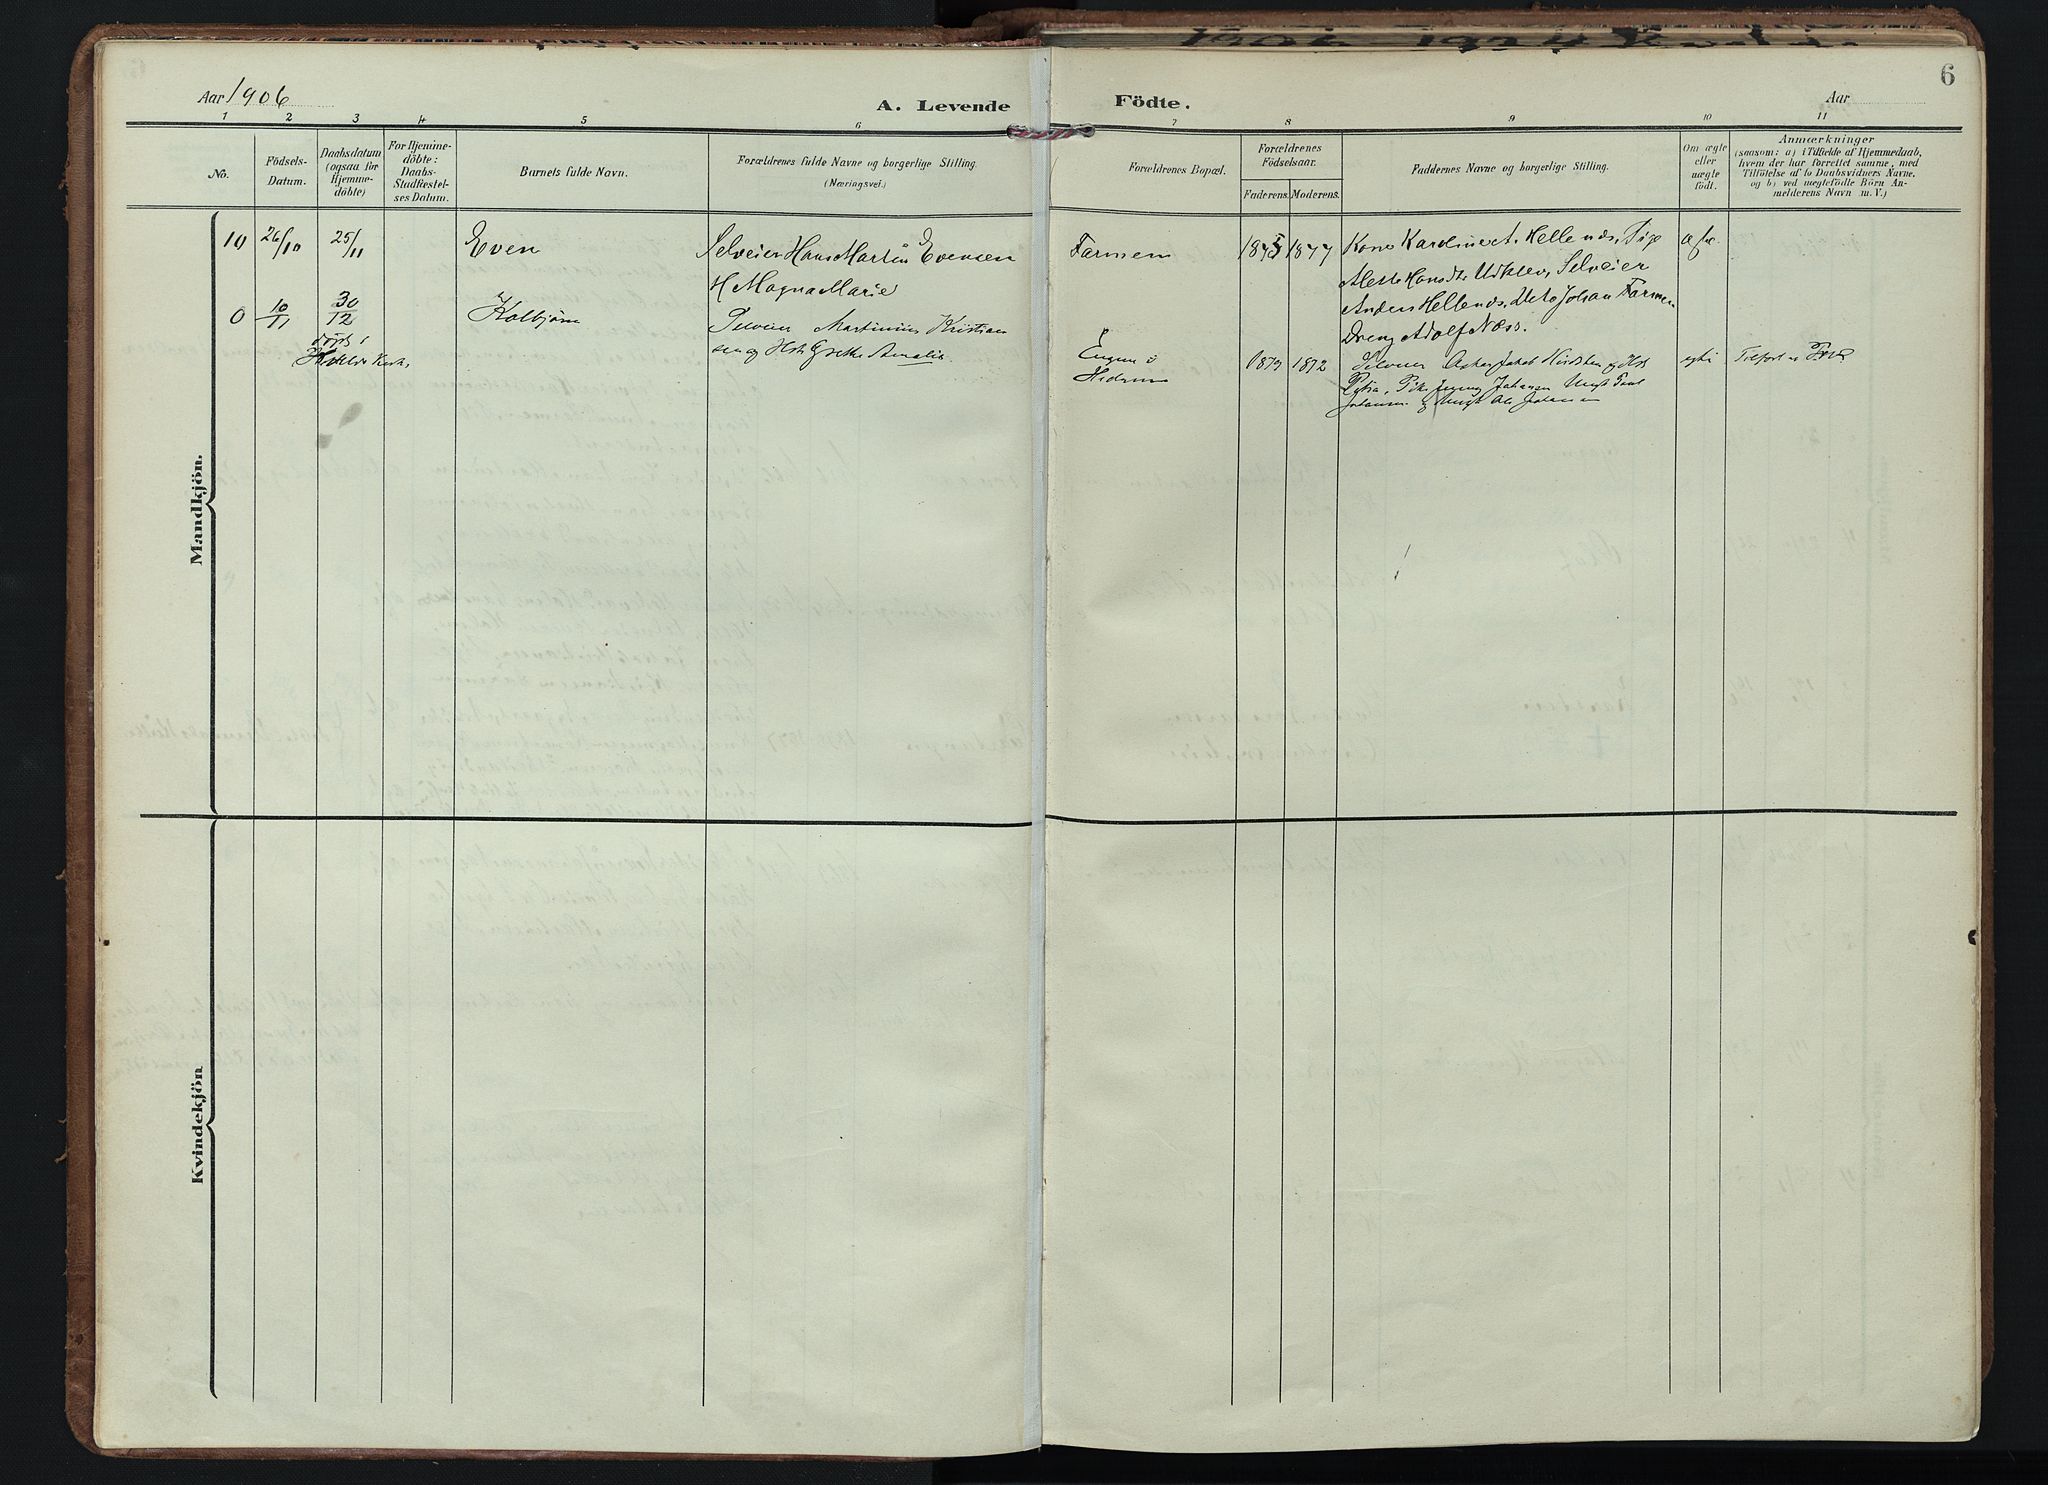 6
Aar 1906
A. Levende
Födte.
Aar
1 2 3 4 5 6 7 8 9 10 11
No.
Födsels-
Datum.
Daabsdatum
(ogsaa for
Hjemme-
döbte)
For Hjemme-
döbte:
Daabs-
Stadfæstel-
ses Datum.
Barnets fulde Navn.
Forældrenes fulde Navne og borgerlige Stilling.
(Næringsvei.)
Forældrenes Bopæl.
Forældrenes
Födselsaar.
Faderens. Moderens.
Faddernes Navne og borgerlige Stilling.
Om ægte
eller
uægte
födt.
Anmærkninger
(saasom: a) i Tilfælde af Hjemmedaab,
hvem der har forrettet samme, med
Tilföielse af to Daabsvidners Navne.
og b) ved uægtefödte Börn An-
melderens Navn m.V.)
Mandkjön.
10 26/10 25/11 Even
Selveier Hans Martin Evensen
H Magna Marie
Farmen
1875 1877
Kone Kardine A. Hellends, Pige
Alette Hansdtr Udklev, Selveier
Anders Hellends, Ucto Johan Farmen
Dreng Adolf Næss.
ægte
0 10/11 30/12
döpt i
Kirke
Kolbjørn
Selveier Martinius Kristian
sen og Hst Grethe Amalie
Engum i
Hedrum
1873 1872
Selveier Jakob og Hst
Petra, Pike Johansen Ungk
Johansen og Ungk Ole Johansen
egte
Kvindekjön